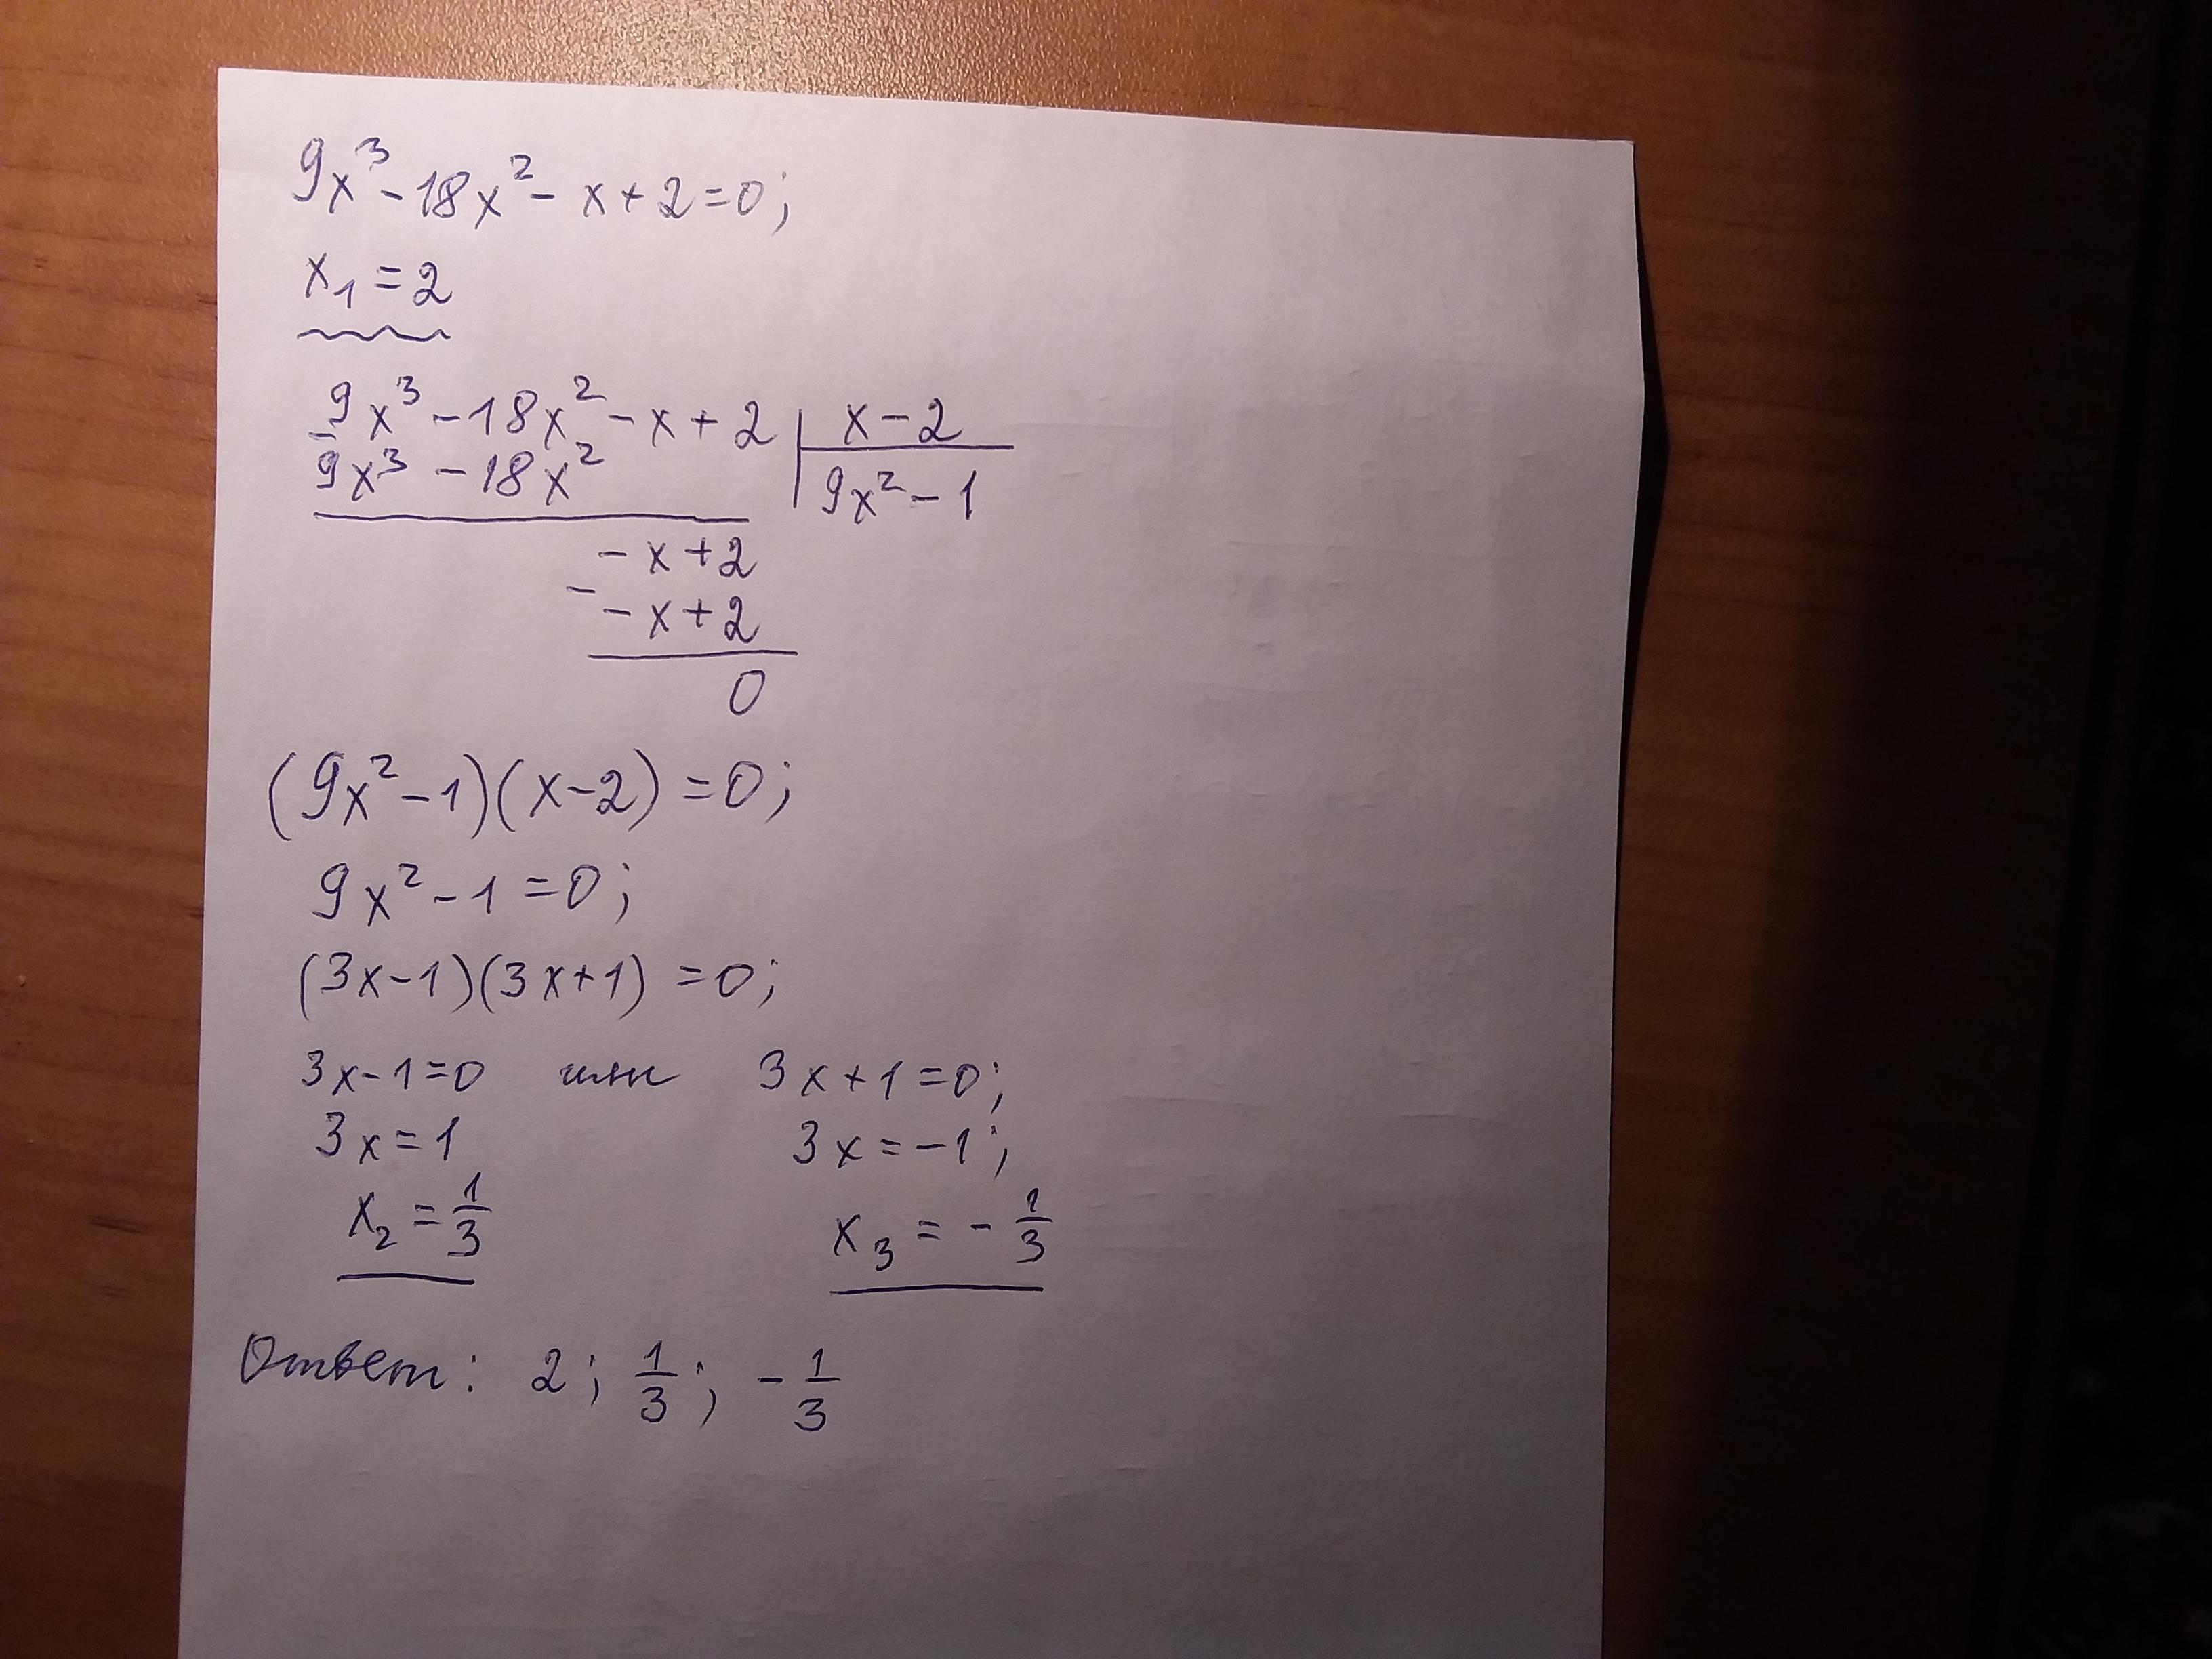 9x³ - 18x² - x + 2 = 0;
x₁ = 2
9x³ - 18x² - x + 2 | x - 2
- 9x³ - 18x² | 9x² - 1
- x + 2
- - x + 2
0
(9x² - 1)(x - 2) = 0;
9x² - 1 = 0;
(3x - 1)(3x + 1) = 0;
3x - 1 = 0 или 3x + 1 = 0;
3x = 1 3x = -1;
x₂ = 1/3 x₃ = - 1/3
Ответ: 2; 1/3; - 1/3